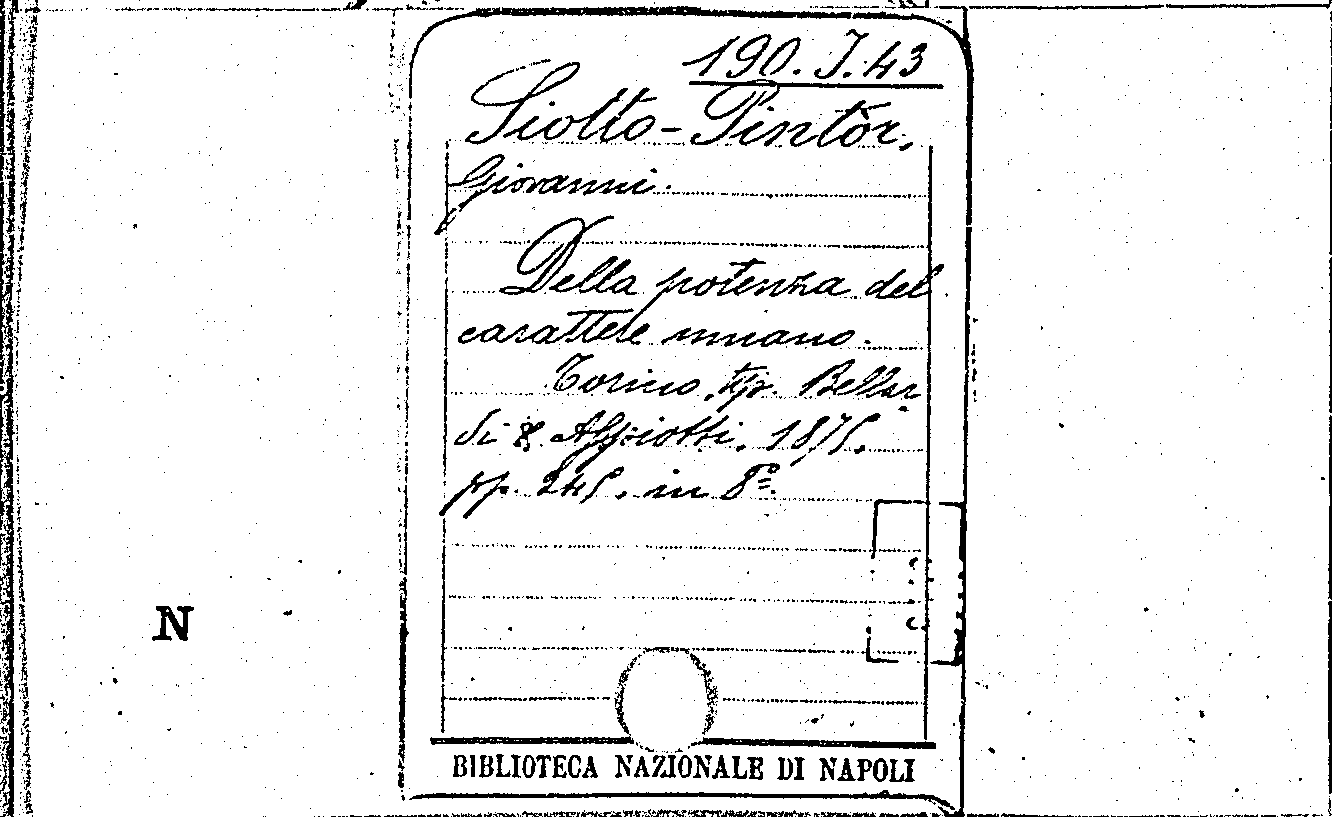 190. J. 43
Siotto-Pintòr,
Giovanni.
Della potenza del
carattere umano.
Torino, tip. Bellar
di & Appiotti. 1875.
pp. 245. in 8º.
N
BIBLIOTECA NAZIONALE DI NAPOLI